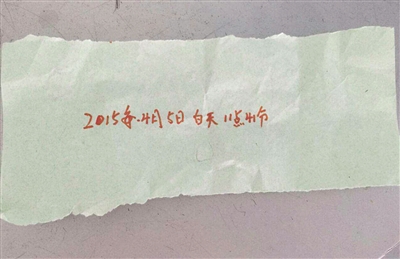 2015年.4月5日 白天 11点4分